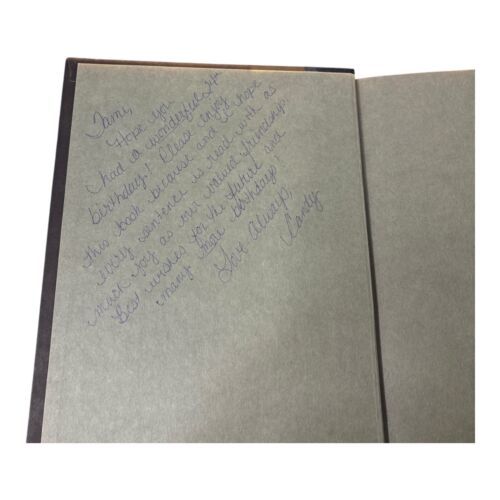 Tami,
Hope you
had a wonderful 24th
birthday! Please enjoy
this book because and I hope
every sentence is read with as
much joy as our valued friendship.
Best wishes for the future and
many more birthdays!
Love Always,
Candy